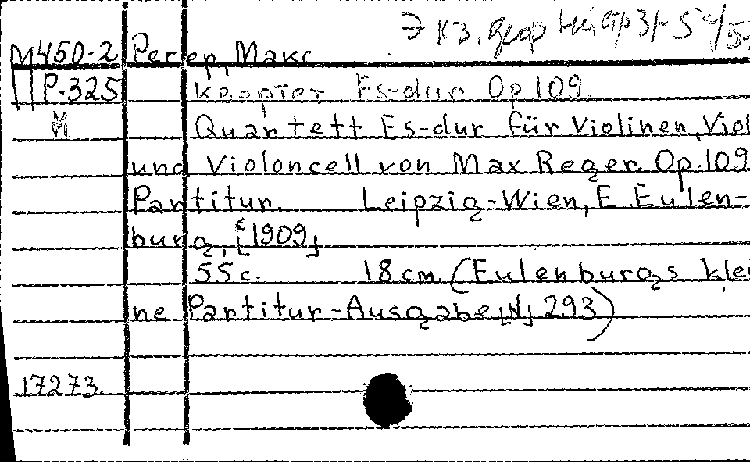 М450-2 Регер, Макс
Р-325 Квартет Es-dur Op 109
Quartett Es-dur für Violinen, Viol
und Violoncell von Max Reger. Op. 109
Partitur. Leipzig-Wien, E Eulen-
burg, [1909]
55 с. 18 cm. (Eulenburgs klei
ne Partitur-Ausgabe [N] 293)
17273